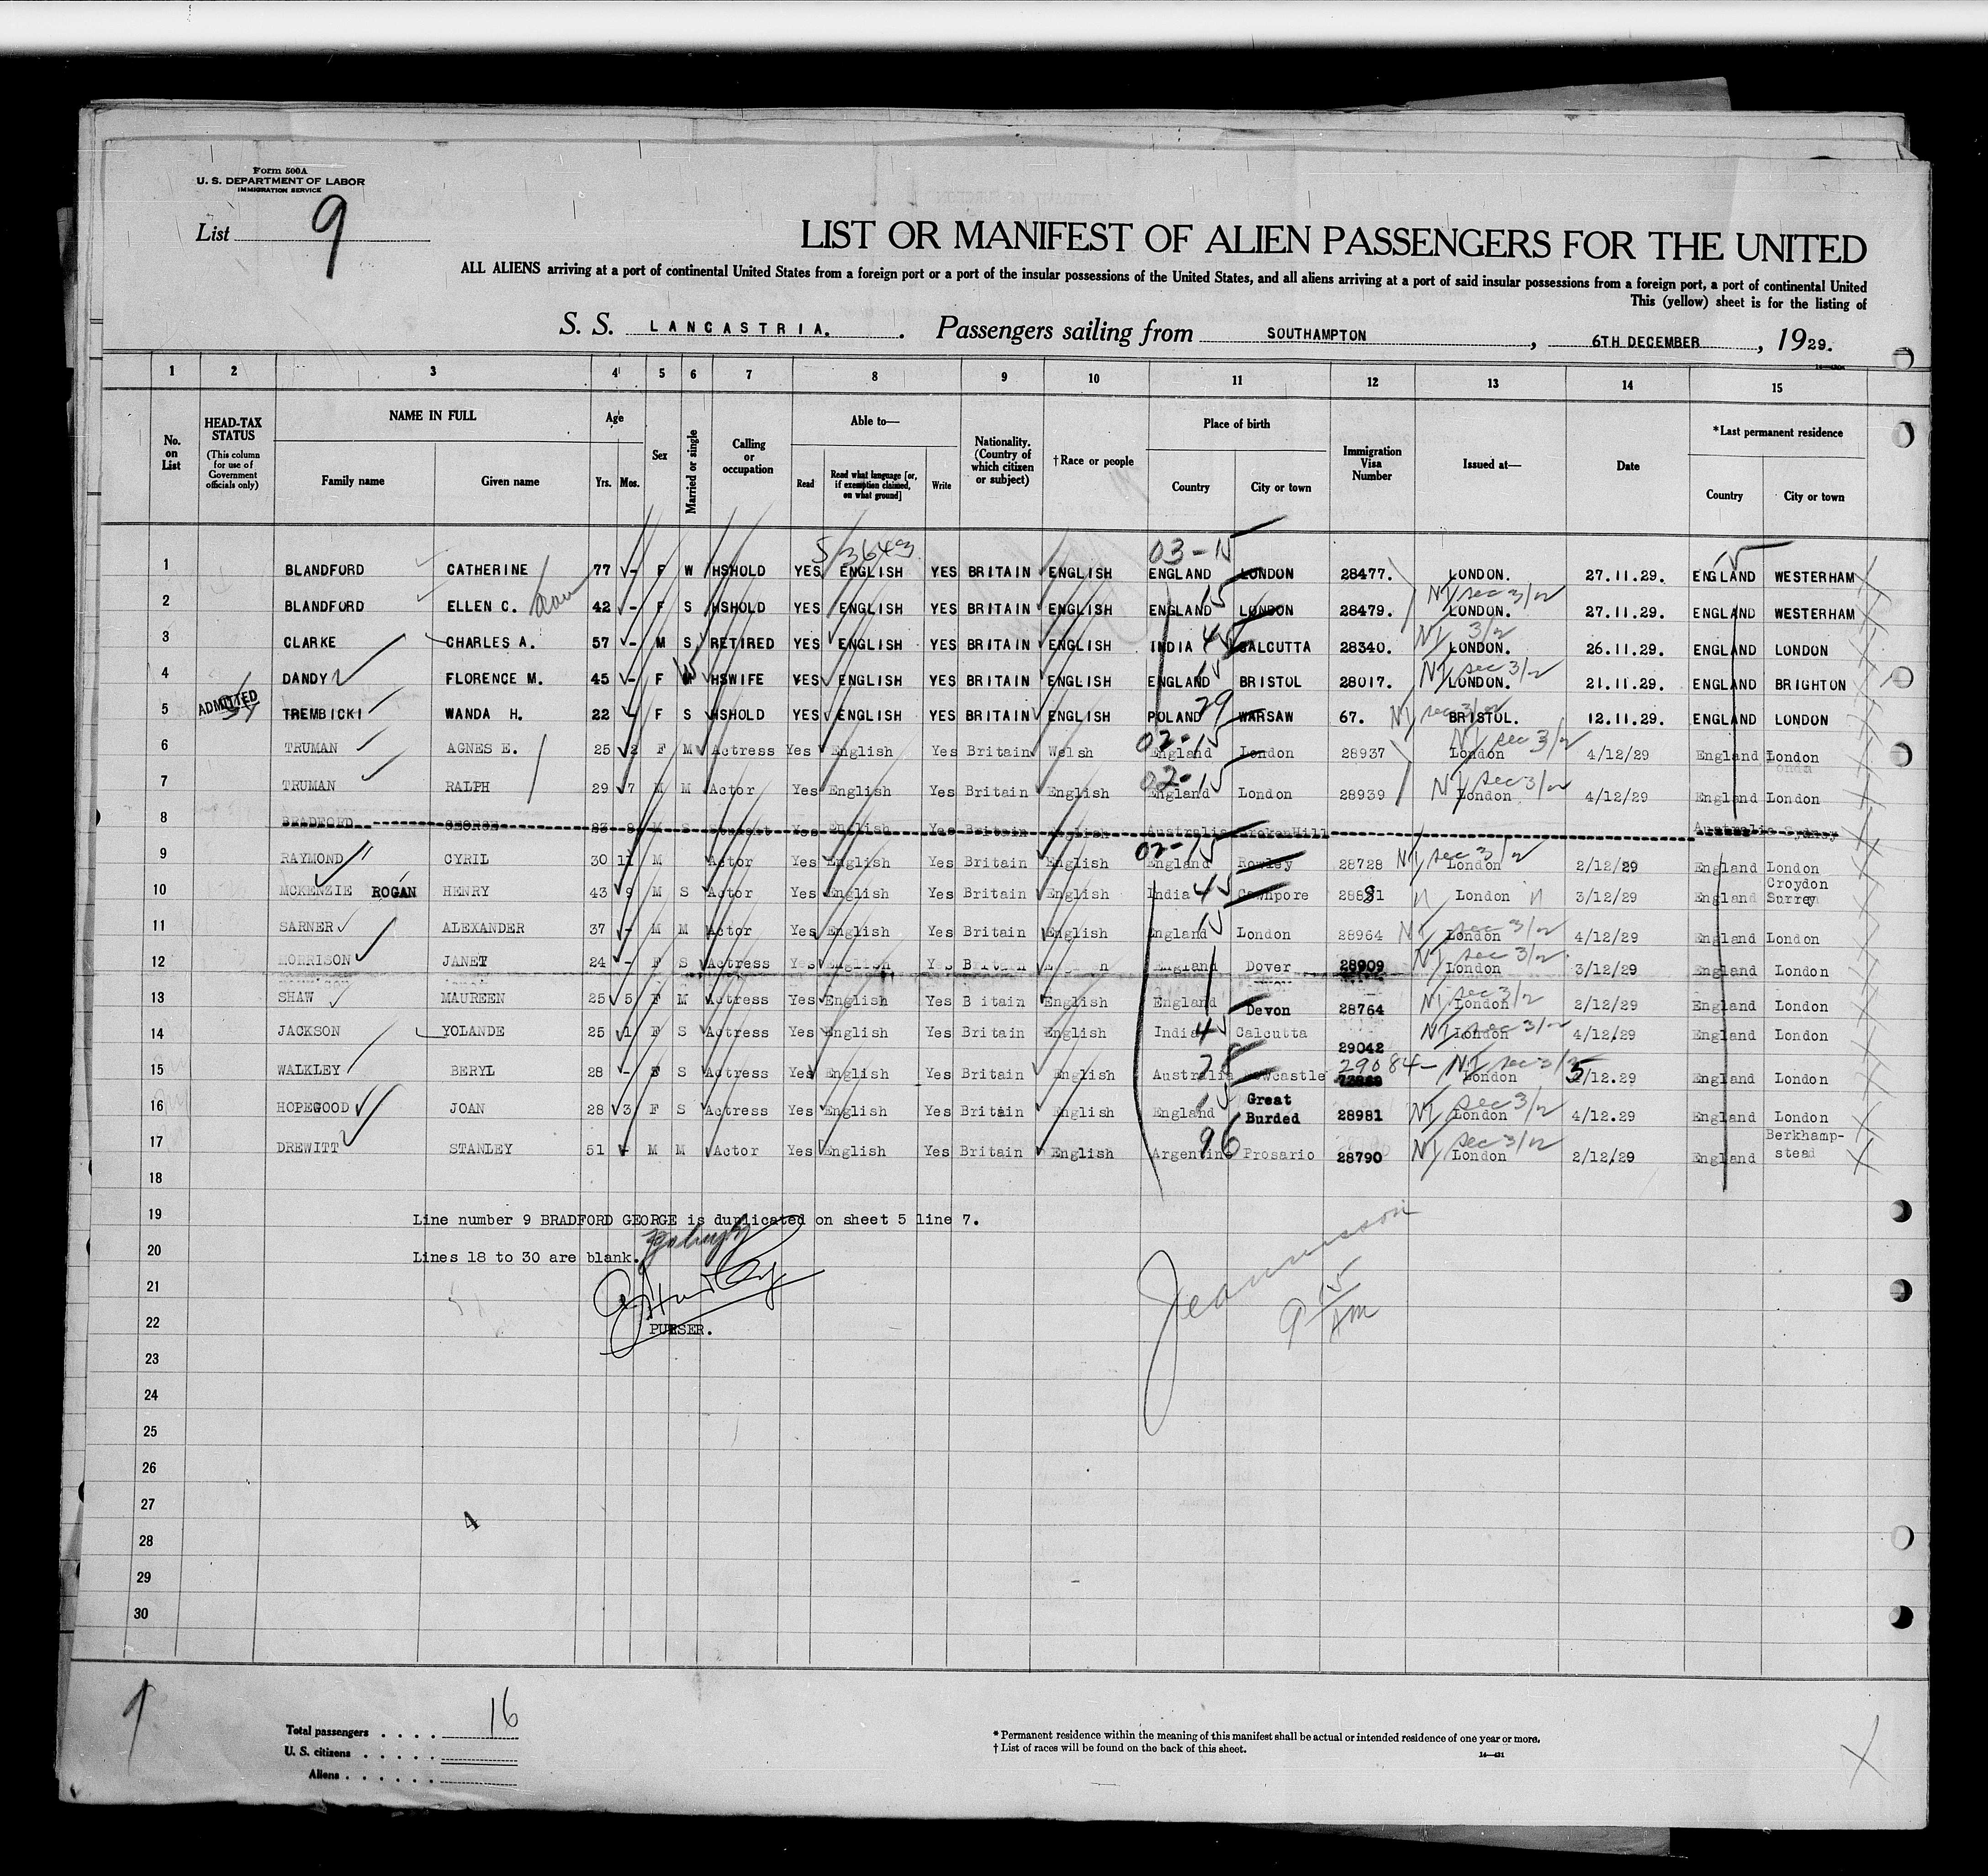 Form 500A
U. S. DEPARTMENT OF LABOR
IMMIGRATION SERVICE
List 9
LIST OR MANIFEST OF ALIEN PASSENGERS FOR THE UNITED
ALL ALIENS arriving at a port of continental United States from a foreign port or a port of the insular possessions of the United States, and all aliens arriving at a port of said insular possessions from a foreign port, a port of continental United
This (yellow) sheet is for the listing of
S. S. LANCASTRIA. Passengers sailing from SOUTHAMPTON, 6TH DECEMBER, 1929.
1 2 3 4 5 6 7 8 9 10 11 12 13 14 15
No. on List
HEAD-TAX STATUS (This column for use of Government officials only)
NAME IN FULL Family name Given name
Age Yrs. Mos.
Sex
Married or single
Calling or occupation
Able to— Read Read what language [or, if exemption claimed, on what ground] Write
Nationality. (Country of which citizen or subject)
†Race or people
Place of birth Country City or town
Immigration Visa Number
Issued at—
Date
*Last permanent residence Country City or town
5/3643 03-15
1 BLANDFORD CATHERINE 77 - F W HSHOLD YES ENGLISH YES BRITAIN ENGLISH ENGLAND LONDON 28477. LONDON. 27.11.29. ENGLAND WESTERHAM
2 BLANDFORD ELLEN C. 42 - F S HSHOLD YES ENGLISH YES BRITAIN ENGLISH ENGLAND 15 LONDON 28479. NY sec 3/2 LONDON. 27.11.29. ENGLAND WESTERHAM
3 CLARKE CHARLES A. 57 - M S RETIRED YES ENGLISH YES BRITAIN ENGLISH INDIA 45 CALCUTTA 28340. NY 3/2 LONDON. 26.11.29. ENGLAND LONDON
4 DANDY FLORENCE M. 45 - F HSWIFE YES ENGLISH YES BRITAIN ENGLISH ENGLAND 15 BRISTOL 28017. NY sec 3/2 LONDON. 21.11.29. ENGLAND BRIGHTON
5 ADMITTED TREMBICKI WANDA H. 22 - F S HSHOLD YES ENGLISH YES BRITAIN ENGLISH POLAND 29 WARSAW 67. NY sec 3/2 BRISTOL. 12.11.29. ENGLAND LONDON
6 TRUMAN AGNES E. 25 2 F M Actress Yes English Yes Britain Welsh 02-15 England London 28937 NY sec 3/2 London 4/12/29 England London
7 TRUMAN RALPH 29 7 M M Actor Yes English Yes Britain English 02-15 England London 28939 NY sec 3/2 London 4/12/29 England London
8 BRADFORD GEORGE 23 8 M S Student Yes English Yes Britain English Australia BrokenHill Australia Sydney
9 RAYMOND CYRIL 30 11 M Actor Yes English Yes Britain English 02-15 England Rowley 28728 NY sec 3/2 London 2/12/29 England London
10 MCKENZIE ROGAN HENRY 43 9 M S Actor Yes English Yes Britain English India 45 Cawnpore 28881 " London " 3/12/29 England Croydon Surrey
11 SARNER ALEXANDER 37 - M M Actor Yes English Yes Britain English England 15 London 28964 NY sec 3/2 London 4/12/29 England London
12 MORRISON JANET 24 - F S Actress Yes English Yes Britain English England Dover 28909 NY sec 3/2 London 3/12/29 England London
13 SHAW MAUREEN 25 5 F M Actress Yes English Yes Britain English England Devon 28764 NY sec 3/2 London 2/12/29 England London
14 JACKSON YOLANDE 25 1 F S Actress Yes English Yes Britain English India 45 Calcutta 29042 NY sec 3/2 London 4/12/29 England London
15 WALKLEY BERYL 28 - F S Actress Yes English Yes Britain English Australia Newcastle 29084 - NY sec 3/2 London 5/12.29 England London
16 HOPEGOOD JOAN 28 3 F S Actress Yes English Yes Britain English England 15 Great Burded 28981 NY sec 3/2 London 4/12.29 England London
17 DREWITT STANLEY 51 - M M Actor Yes English Yes Britain English Argentine 96 Prosario 28790 NY sec 3/2 London 2/12/29 England Berkhamp-stead
18
19 Line number 9 BRADFORD GEORGE is duplicated on sheet 5 line 7.
20 Lines 18 to 30 are blank.
21
22 PURSER.
9 15 AM
23
24
25
26
27
28
29
30
4
Total passengers . . . . 16
U. S. citizens . . . . .
Aliens . . . . . .
* Permanent residence within the meaning of this manifest shall be actual or intended residence of one year or more.
† List of races will be found on the back of this sheet.
14—421